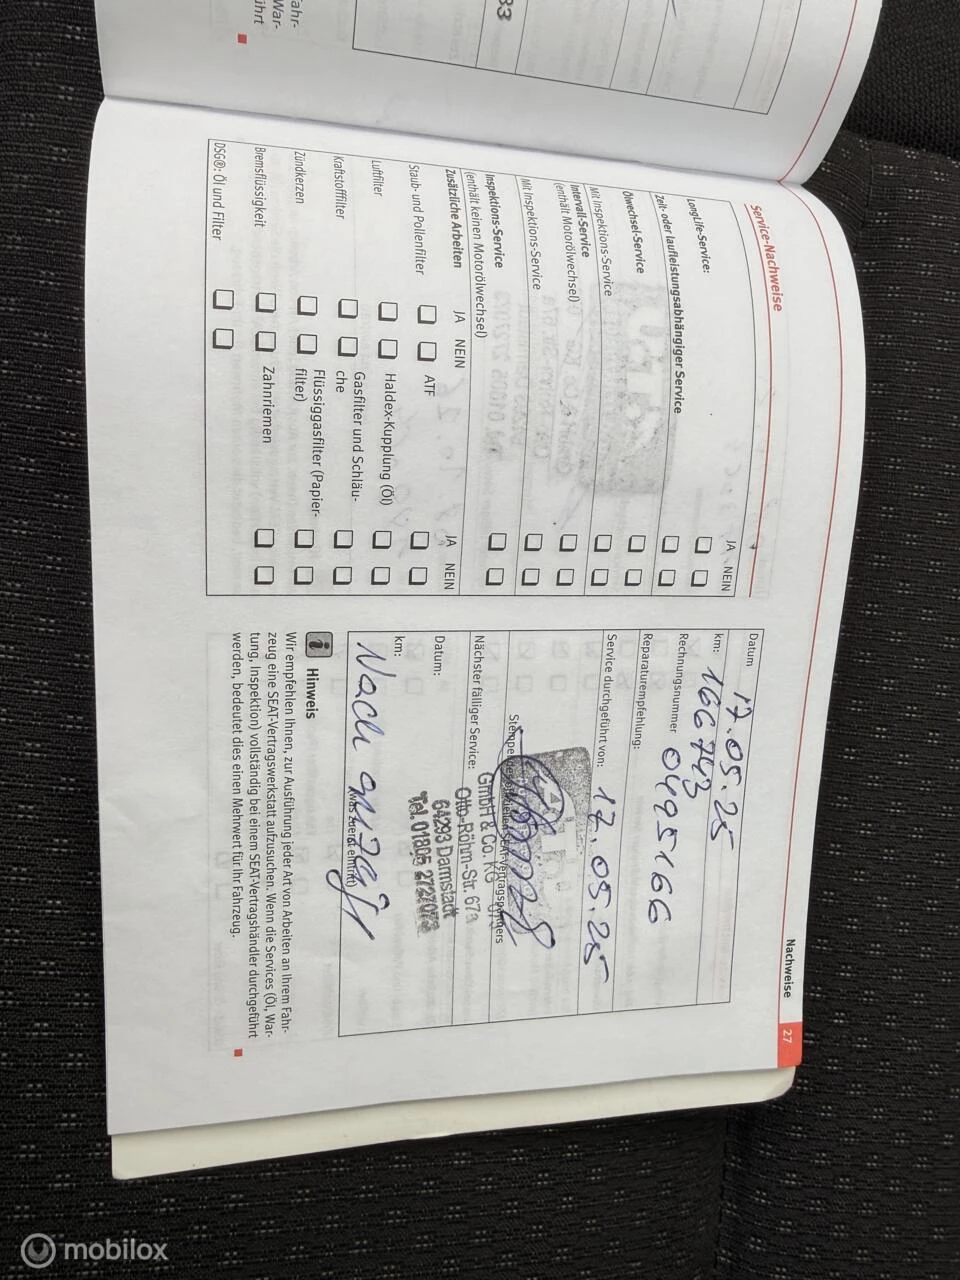 83
ahr-
War-
ührt
Nachweise 27
Service-Nachweise
JA NEIN
LongLife-Service:
Zeit- oder laufleistungsabhängiger Service
Ölwechsel-Service
Mit Inspektions-Service
Intervall-Service
(enthält Motorölwechsel)
Mit Inspektions-Service
Inspektions-Service
(enthält keinen Motorölwechsel)
Zusätzliche Arbeiten JA NEIN JA NEIN
Staub- und Pollenfilter ATF
Luftfilter Haldex-Kupplung (Öl)
Kraftstofffilter Gasfilter und Schläu-
che
Zündkerzen Flüssiggasfilter (Papier-
filter)
Bremsflüssigkeit Zahnriemen
DSG®: Öl und Filter
Datum 17.05.25
km: 166743
Rechnungsnummer 0495166
Reparaturempfehlung:
Service durchgeführt von: 17.05.25
GmbH & Co. KG
Otto-Röhm-Str. 67a
64293 Darmstadt
Tel. 01805 2727073
Nächster fälliger Service:
Datum:
km:
(was zuerst eintritt)
Nach anzeige
Hinweis
Wir empfehlen Ihnen, zur Ausführung jeder Art von Arbeiten an Ihrem Fahr-
zeug eine SEAT-Vertragswerkstatt aufzusuchen. Wenn die Services (Öl, War-
tung, Inspektion) vollständig bei einem SEAT-Vertragshändler durchgeführt
werden, bedeutet dies einen Mehrwert für Ihr Fahrzeug.
mobilox